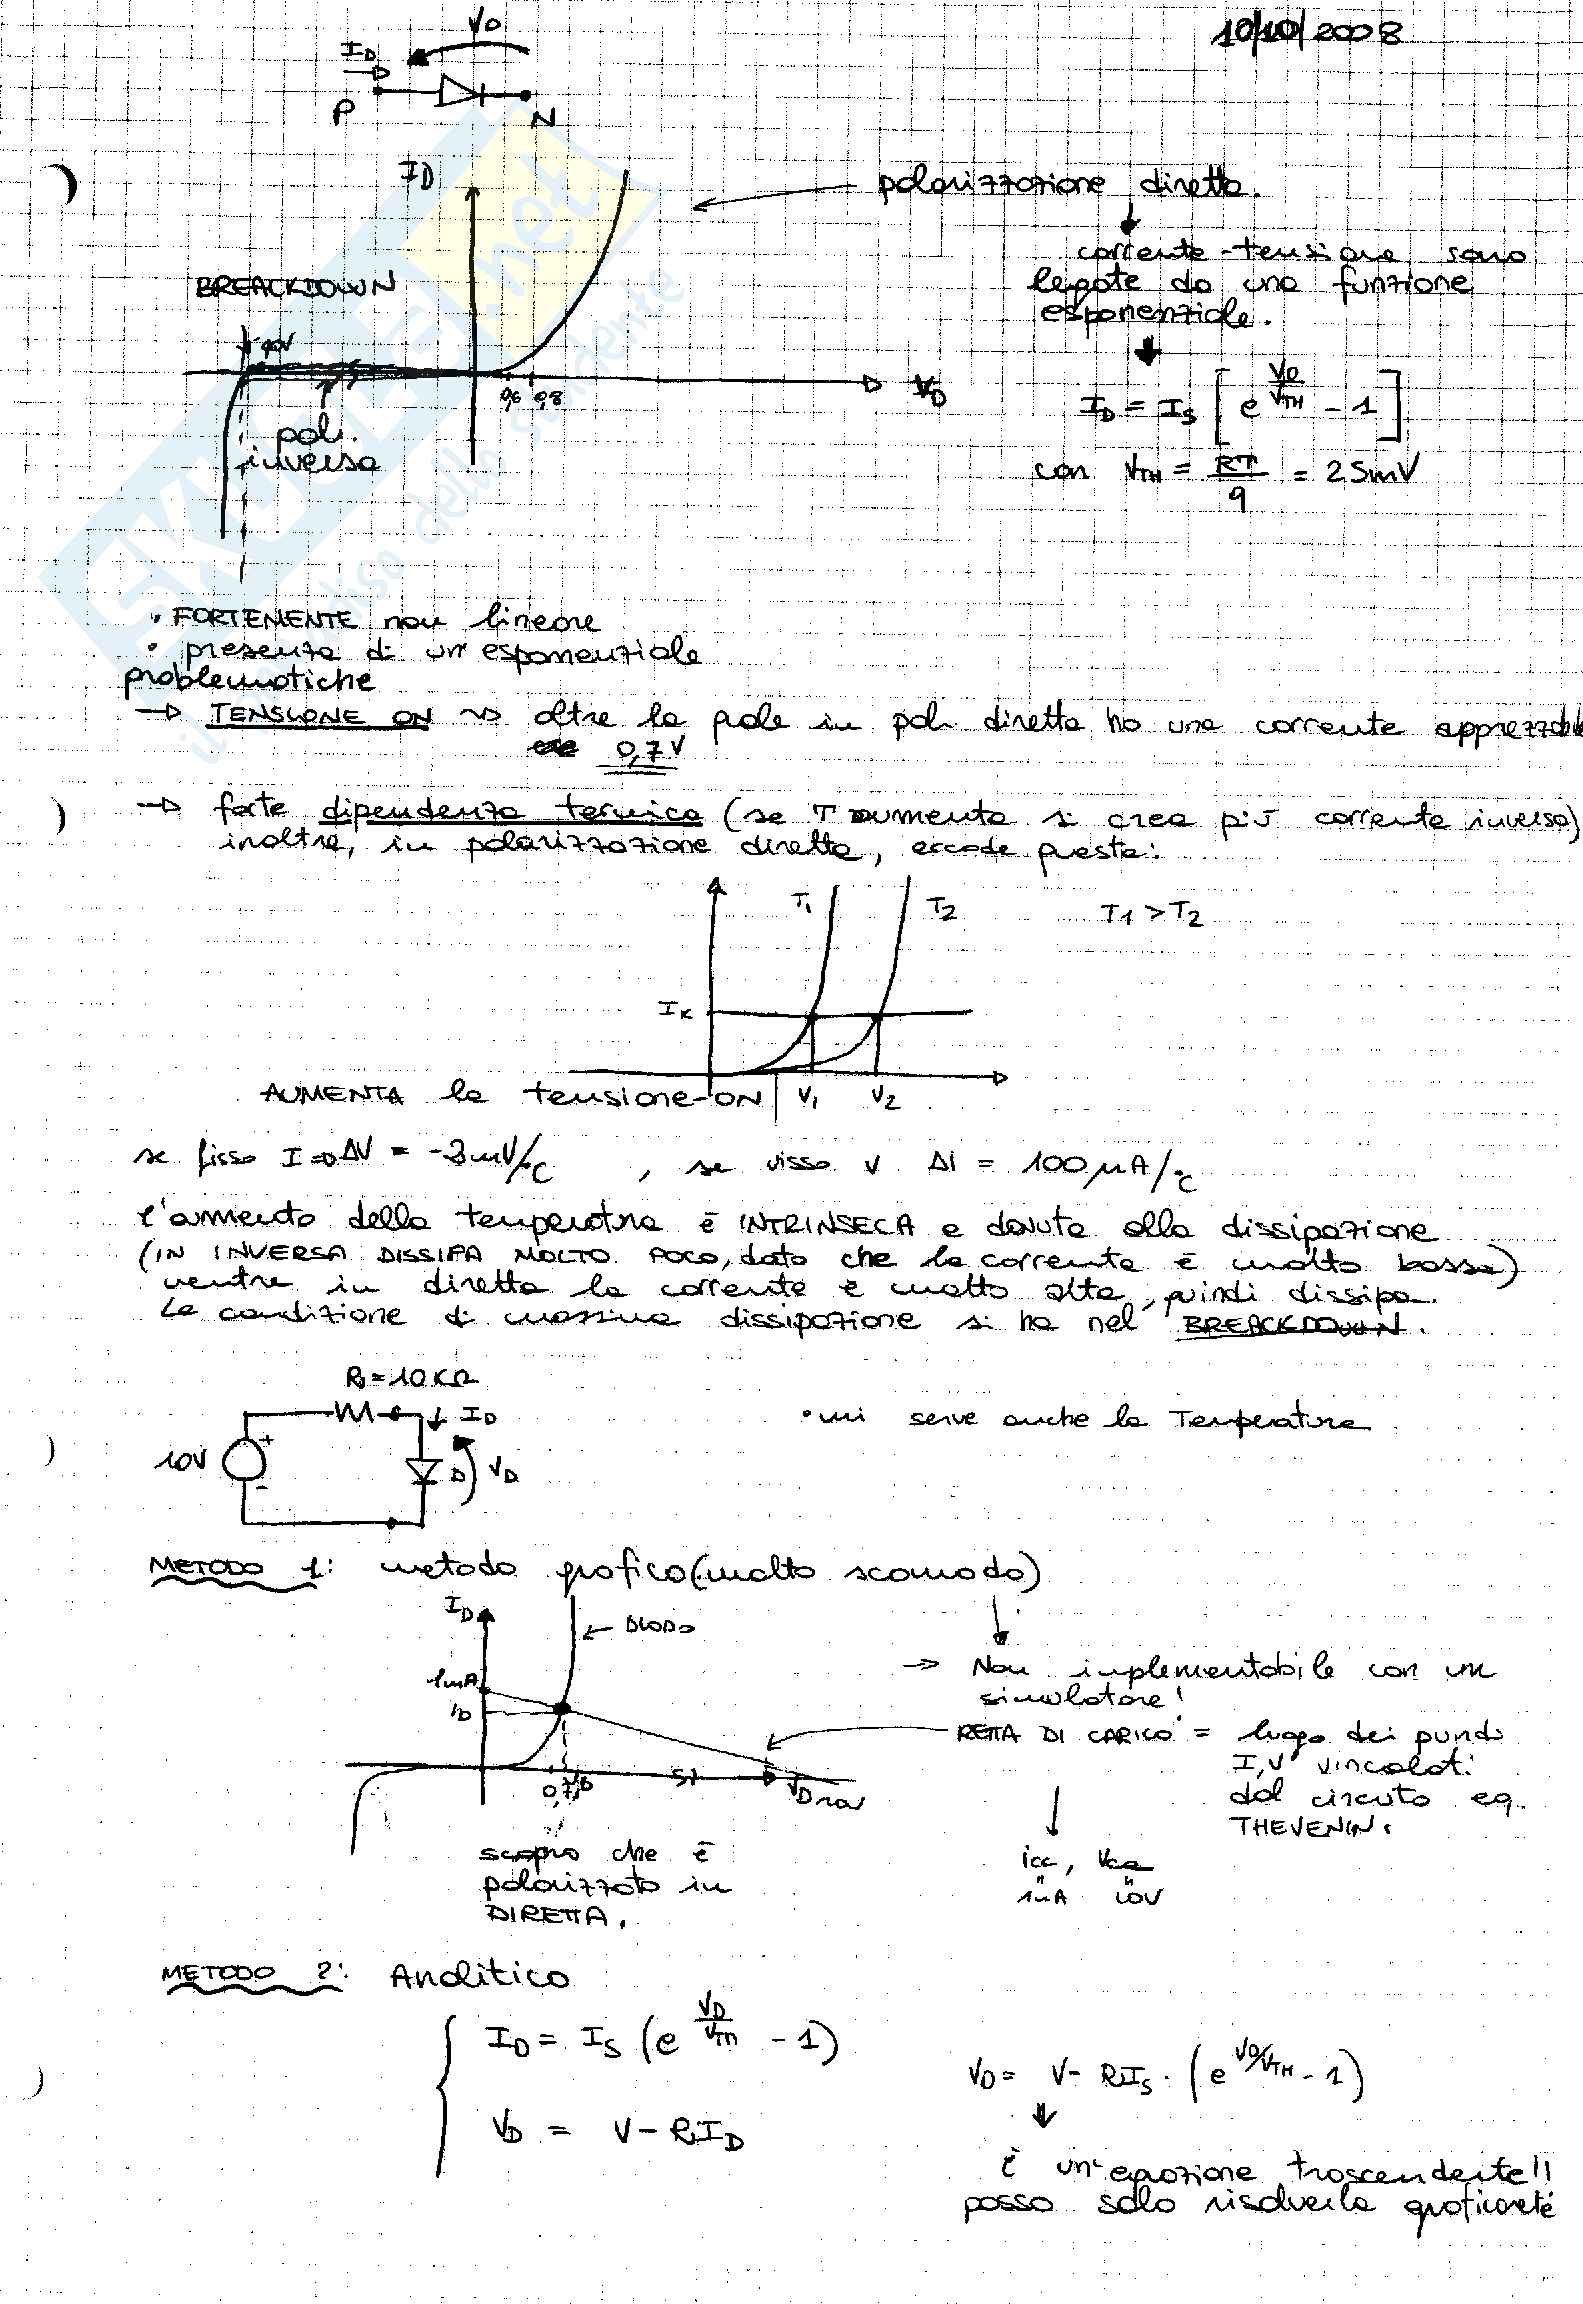 10/10/2008
VD
ID
P
N
ID
polarizzazione diretta.
corrente-tensione sono
legate da una funzione
esponenziale.
BREACKDOWN
0,6 0,8
VD
ID = IS [ e^(VD/VTH) - 1 ]
pol.
inversa
con VTH = RT/q = 25mV
• FORTEMENTE non lineare
• presenza di un esponenziale
problematiche
→ TENSIONE ON ~> oltre la quale in pol. diretta ho una corrente apprezzabile
0,7V
→ forte dipendenza termica (se T aumenta si crea più corrente inversa)
inoltre, in polarizzazione diretta, accade questo:
T1
T2
T1 > T2
IK
AUMENTA la tensione-ON
V1
V2
se fisso I => ΔV = -2mV/°C , se visso V ΔI = 100 µA/°C
l'aumento della temperatura è INTRINSECA e dovuta alla dissipazione
(IN INVERSA DISSIPA MOLTO POCO, dato che la corrente è molto bassa)
mentre in diretta la corrente è molto alta, quindi dissipa.
La condizione di massima dissipazione si ha nel BREACKDOWN.
R1=10KΩ
ID
• mi serve anche la Temperatura
10V
+
-
D
VD
METODO 1: metodo grafico (molto scomodo)
ID
← DIODO
→ Non implementabile con un
simulatore!
1mA
ID
RETTA DI CARICO = luogo dei punti
I,V vincolati
dal circuito eq.
THEVENIN.
0,7
VD
5V
VD
10V
scopro che è
polarizzato in
DIRETTA.
icc,
1mA 10V
METODO 2: Analitico
ID = IS (e^(VD/VTH) - 1)
VD = V - R1IS · (e^(VD/VTH) - 1)
VD = V - R1ID
È un'equazione trascendente!!
posso solo risolverla graficante